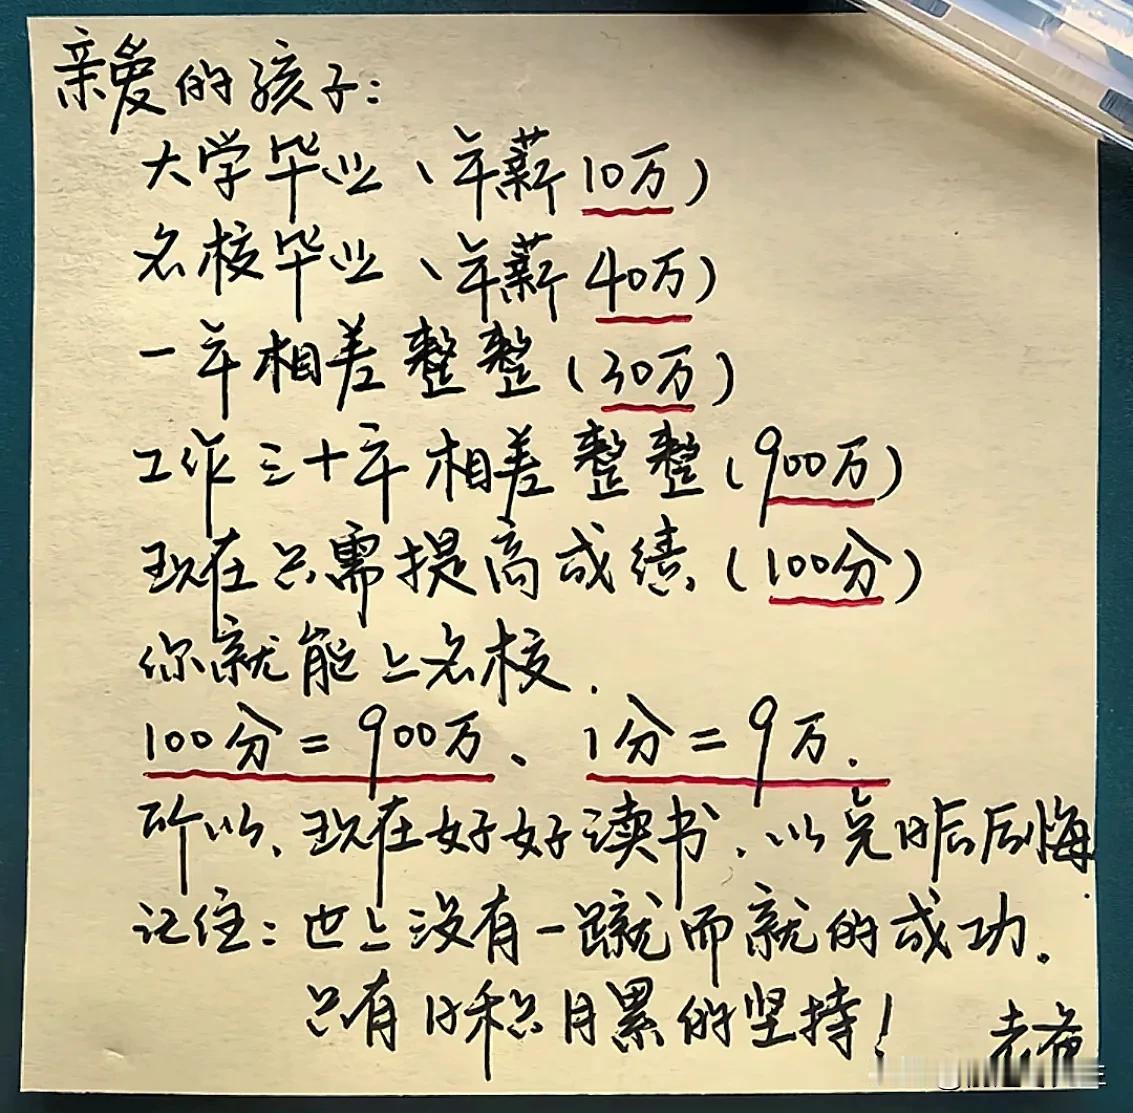 亲爱的孩子:
大学毕业、年薪10万)
名校毕业、年薪40万)
一年相差整整(30万)
工作三十年相差整整(900万)
现在只需提高成绩(100分)
你就能上名校.
100分=900万、1分=9万.
所以、现在好好读书.以免日后后悔.
记住:世上没有一蹴而就的成功.
只有日积月累的坚持!